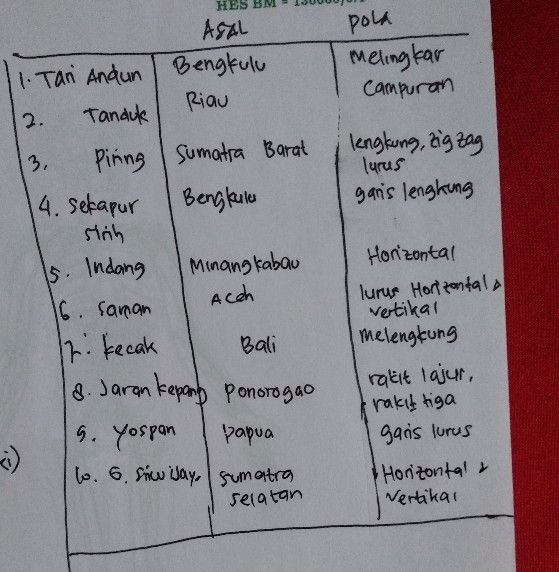 HES BM = 
ASAL POLA
1. Tari Andun Bengkulu Melingkar
2. Tanduk Riau Campuran
3. Piring Sumatra Barat lengkung, zig zag
lurus
4. Sekapur Bengkulu garis lengkung
sirih
5. Indang Minangkabau Horizontal
6. Saman Aceh lurus Horizontal &
vertikal
7. Kecak Bali melengkung
8. Jaran kepang Ponorogao rakit lajur,
rakit tiga
9. Yospan Papua garis lurus
10. G. Sriwijay. Sumatra Horizontal &
selatan vertikal